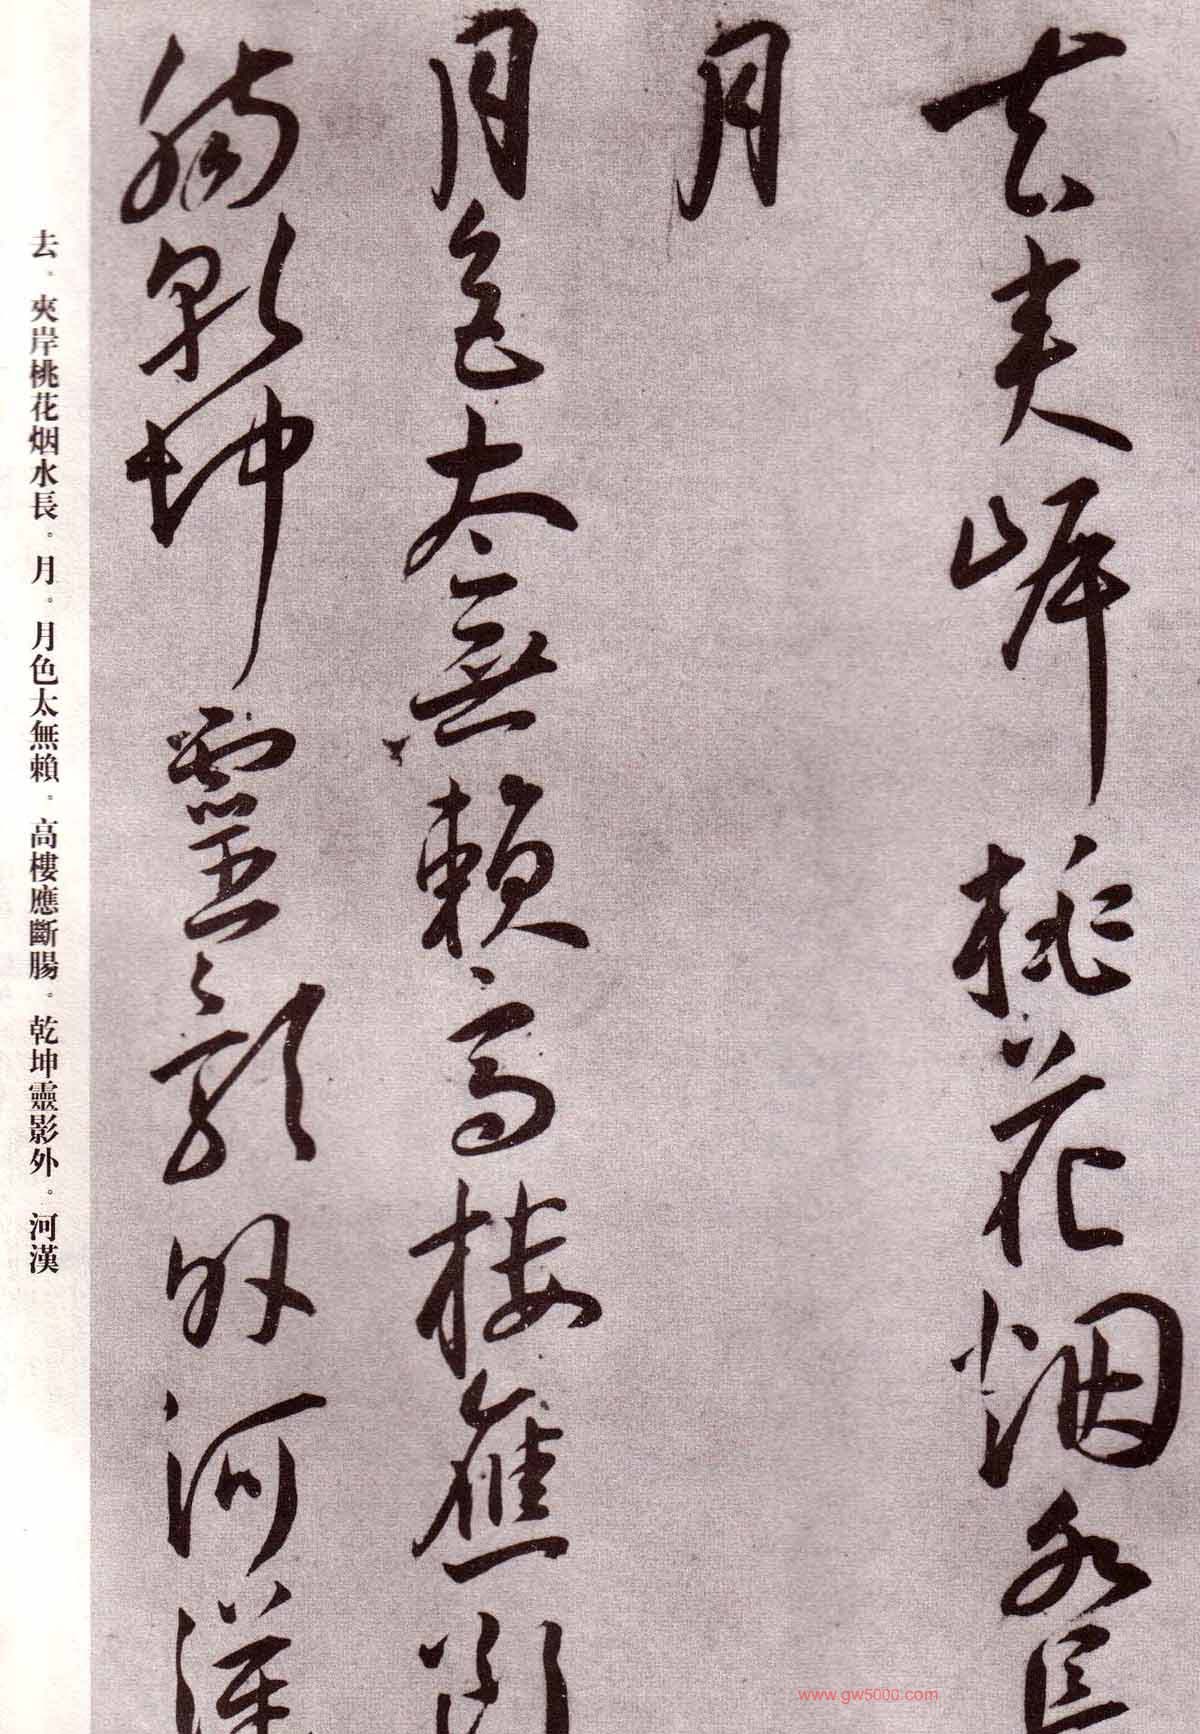 去夾岸桃花烟水長
月
月色太無賴高樓應斷
腸乾坤靈影外河漢
去。夾岸桃花烟水長。月。月色太無賴。高樓應斷腸。乾坤靈影外。河漢
www.gw5000.com